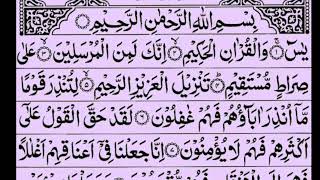 بِسْمِ اللّٰهِ الرَّحْمٰنِ الرَّحِيْمِ
يٰسٓ ۚ وَالْقُرْاٰنِ الْحَكِيْمِ ۙ اِنَّكَ لَمِنَ الْمُرْسَلِيْنَ ۙ عَلٰى
صِرَاطٍ مُّسْتَقِيْمٍ ؕ تَنْزِيْلَ الْعَزِيْزِ الرَّحِيْمِ ۙ لِتُنْذِرَ قَوْمًا
مَّاۤ اُنْذِرَ اٰبَآؤُهُمْ فَهُمْ غٰفِلُوْنَ لَقَدْ حَقَّ الْقَوْلُ عَلٰۤى
اَكْثَرِهِمْ فَهُمْ لَا يُؤْمِنُوْنَ اِنَّا جَعَلْنَا فِيْۤ اَعْنَاقِهِمْ اَغْلٰلًا